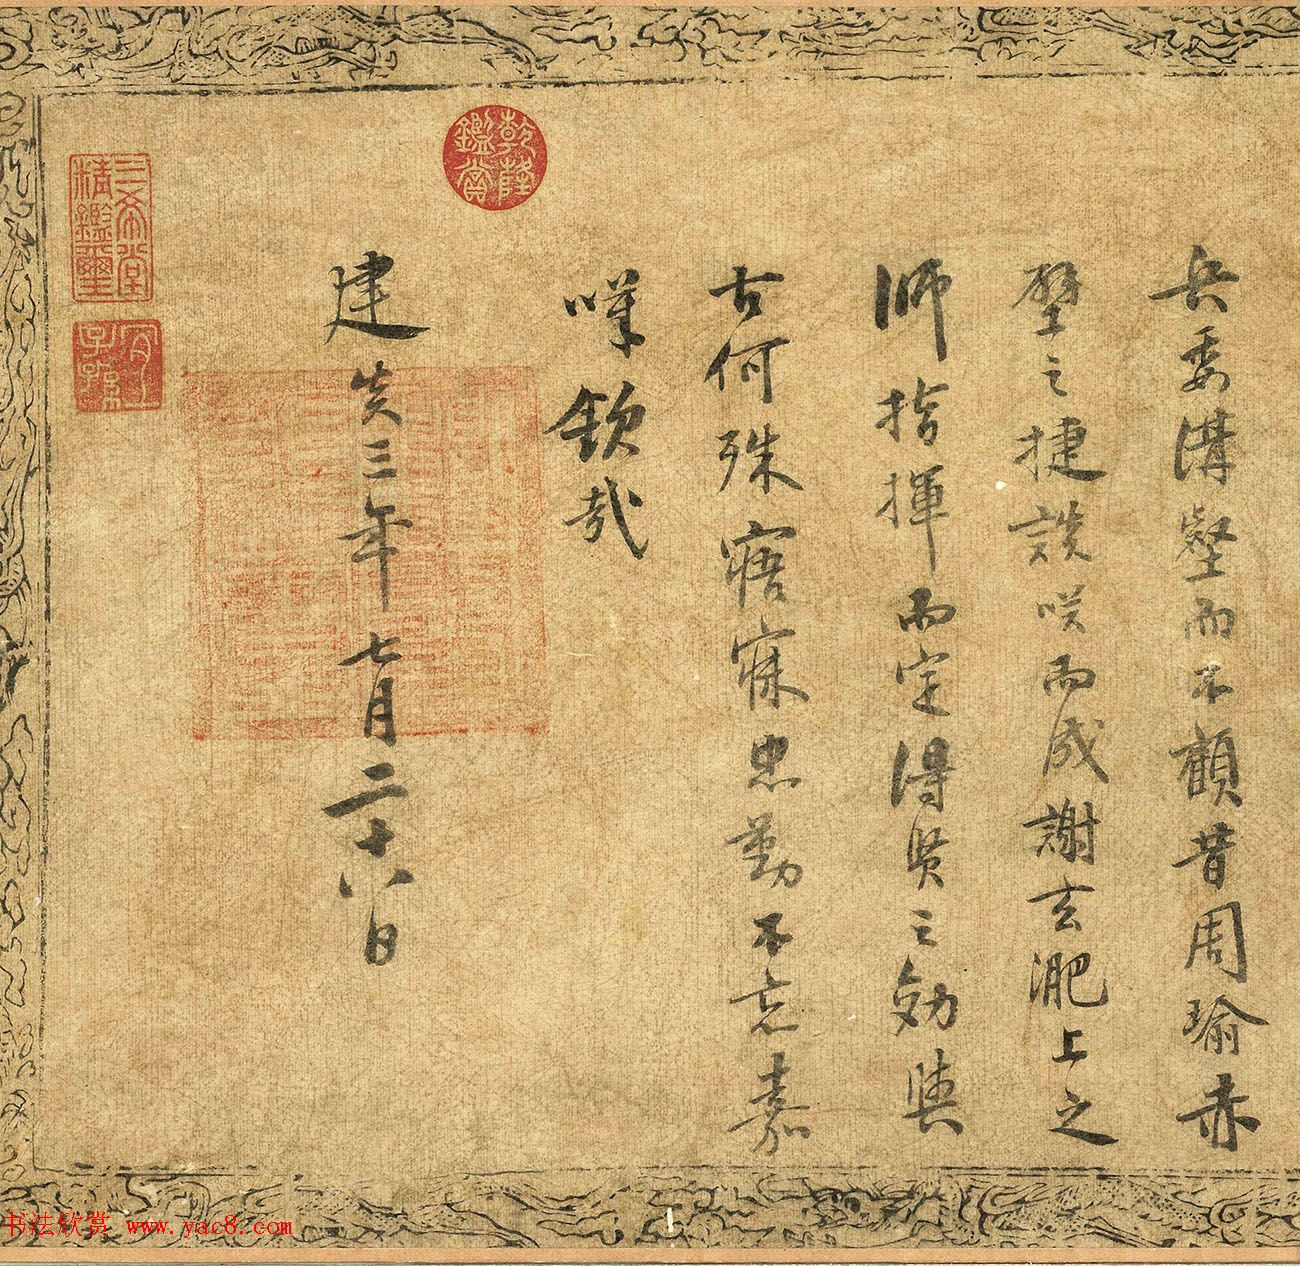 兵委溝壑而不顧昔周瑜赤
壁之捷談咲而成謝玄淝上之
師指揮而定得賢之効與
古何殊寤寐忠勤不忘嘉
嘆欽哉
建炎三年七月二十八日
乾隆鑑賞
三希堂精鑑璽
宜子孫
书法欣赏 www.yac8.com